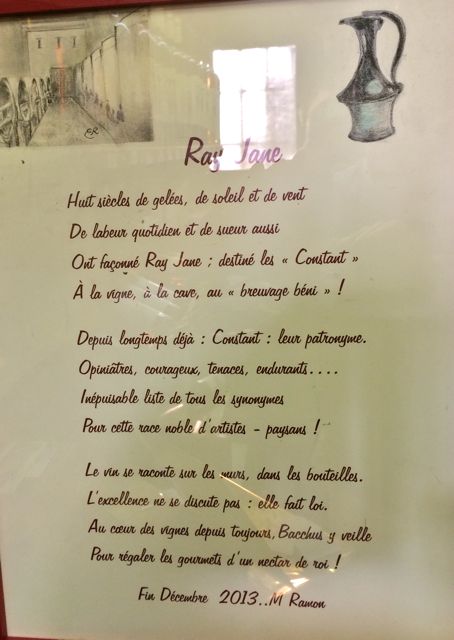 ER
Ray Jane
Huit siècles de gelées, de soleil et de vent
De labeur quotidien et de sueur aussi
Ont façonné Ray Jane ; destiné les « Constant »
À la vigne, à la cave, au « breuvage béni » !
Depuis longtemps déjà : Constant : leur patronyme.
Opiniâtres, courageux, tenaces, endurants....
Inépuisable liste de tous les synonymes
Pour cette race noble d'artistes - paysans !
Le vin se raconte sur les murs, dans les bouteilles.
L'excellence ne se discute pas : elle fait loi.
Au cœur des vignes depuis toujours, Bacchus y veille
Pour régaler les gourmets d'un nectar de roi !
Fin Décembre 2013..M Ramon